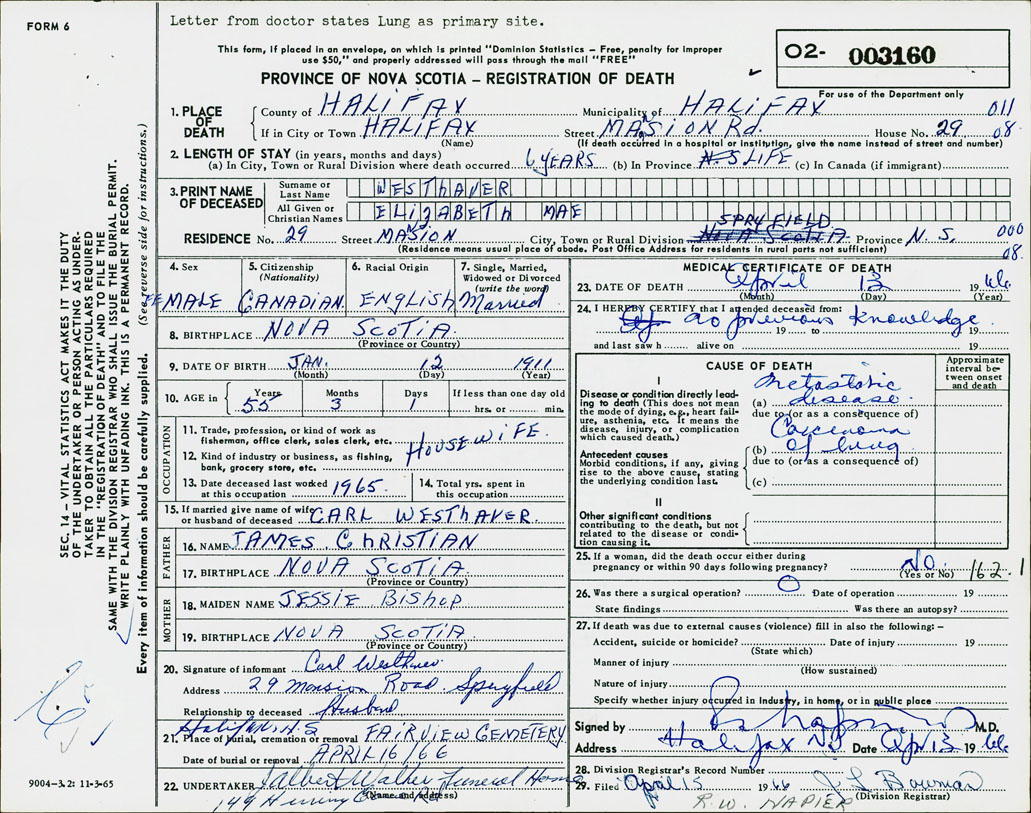 FORM 6
Letter from doctor states Lung as primary site.
This form, if placed in an envelope, on which is printed "Dominion Statistics – Free, penalty for improper
use $50," and properly addressed will pass through the mail "FREE"
02- 003160
PROVINCE OF NOVA SCOTIA – REGISTRATION OF DEATH
For use of the Department only
1. PLACE OF DEATH County of HALIFAX Municipality of HALIFAX 011
If in City or Town HALIFAX Street MASION Rd. House No. 29 08
(Name) (If death occurred in a hospital or institution, give the name instead of street and number)
2. LENGTH OF STAY (in years, months and days)
(a) In City, Town or Rural Division where death occurred 6 YEARS (b) In Province LIFE (c) In Canada (if immigrant)
3. PRINT NAME OF DECEASED Surname or Last Name WESTHAVER
All Given or Christian Names ELIZABETH MAE
SPRYFIELD
RESIDENCE No. 29 Street MASION City, Town or Rural Division NOVA SCOTIA Province N.S. 000
(Residence means usual place of abode. Post Office Address for residents in rural parts not sufficient) 08
4. Sex 5. Citizenship (Nationality) 6. Racial Origin 7. Single, Married, Widowed or Divorced (write the word)
FEMALE CANADIAN. ENGLISH Married
8. BIRTHPLACE NOVA SCOTIA.
(Province or Country)
9. DATE OF BIRTH JAN. 12 1911
(Month) (Day) (Year)
10. AGE in Years Months Days If less than one day old
55 3 1 hrs. or min.
OCCUPATION
11. Trade, profession, or kind of work as
fisherman, office clerk, sales clerk, etc. HOUSEWIFE.
12. Kind of industry or business, as fishing,
bank, grocery store, etc.
13. Date deceased last worked at this occupation 1965. 14. Total yrs. spent in this occupation
15. If married give name of wife or husband of deceased CARL WESTHAVER.
FATHER
16. NAME JAMES CHRISTIAN
17. BIRTHPLACE NOVA SCOTIA
(Province or Country)
MOTHER
18. MAIDEN NAME JESSIE BISHOP
19. BIRTHPLACE NOVA SCOTIA
(Province or Country)
20. Signature of informant Carl Westhaver
Address 29 Mansion Road. Spryfield
Relationship to deceased Husband
Halifax, N.S.
21. Place of burial, cremation or removal FAIRVIEW CEMETERY
Date of burial or removal APRIL 16/66
22. UNDERTAKER Walker Funeral Home
149 (Name and address)
MEDICAL CERTIFICATE OF DEATH
23. DATE OF DEATH April 13 1966
(Month) (Day) (Year)
24. I HEREBY CERTIFY that I attended deceased from:
no previous knowledge
19 to 19
and last saw h alive on 19
CAUSE OF DEATH
Approximate interval between onset and death
I
Disease or condition directly leading to death (This does not mean the mode of dying, e.g., heart failure, asthenia, etc. It means the disease, injury, or complication which caused death.)
Metastatic
(a) disease
due to (or as a consequence of)
Antecedent causes
Morbid conditions, if any, giving rise to the above cause, stating the underlying condition last.
Carcinoma
(b) of lung
due to (or as a consequence of)
(c)
II
Other significant conditions
contributing to the death, but not related to the disease or condition causing it.
25. If a woman, did the death occur either during
pregnancy or within 90 days following pregnancy? NO. 162.1
(Yes or No)
26. Was there a surgical operation? O Date of operation 19
State findings Was there an autopsy?
27. If death was due to external causes (violence) fill in also the following: –
Accident, suicide or homicide? Date of injury 19
(State which)
Manner of injury
(How sustained)
Nature of injury
Specify whether injury occurred in industry, in home, or in public place
Signed by M.D.
Address Halifax NS Date Apr 13 1966
28. Division Registrar's Record Number
29. Filed April 15 1966 Bowman
R.W. NAPIER (Division Registrar)
SEC. 14 – VITAL STATISTICS ACT MAKES IT THE DUTY
OF THE UNDERTAKER OR PERSON ACTING AS UNDER-
TAKER TO OBTAIN ALL THE PARTICULARS REQUIRED
IN THE "REGISTRATION OF DEATH" AND TO FILE THE
SAME WITH THE DIVISION REGISTRAR WHO SHALL ISSUE THE BURIAL PERMIT.
WRITE PLAINLY WITH UNFADING INK. THIS IS A PERMANENT RECORD.
Every item of information should be carefully supplied. (See reverse side for instructions.)
9004-3.2: 11-3-65